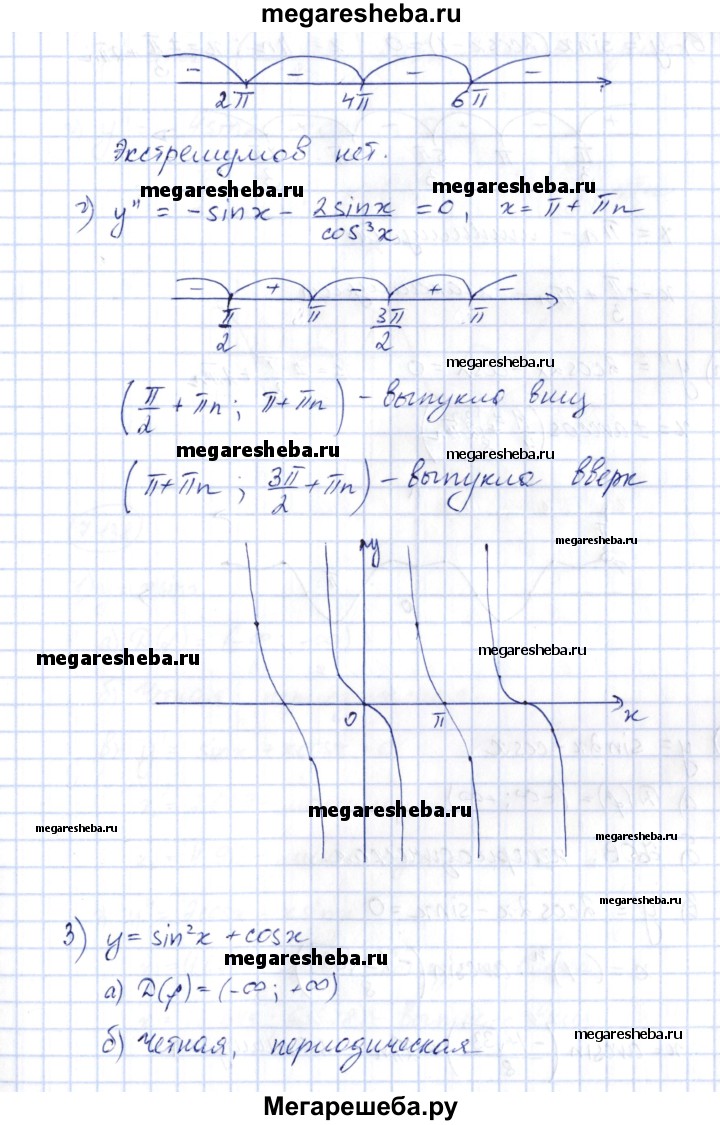 megaresheba.ru
- - - -
2π 4π 6π
Экстремумов нет.
megaresheba.ru megaresheba.ru
г) y'' = -sinx - 2sinx/cos³x = 0, x = π + πn
- + - + -
π/2 π 3π/2 π
megaresheba.ru
(π/2 + πn; π + πn) - выпукла вниз
megaresheba.ru
(π + πn; 3π/2 + πn) - выпукла вверх
megaresheba.ru
y
megaresheba.ru
megaresheba.ru
0 π x
megaresheba.ru
megaresheba.ru
megaresheba.ru
megaresheba.ru
3) y = sin²x + cosx
megaresheba.ru
а) D(f) = (-∞; +∞)
megaresheba.ru
б) Четная, периодическая
megaresheba.ru
Мегарешеба.ру